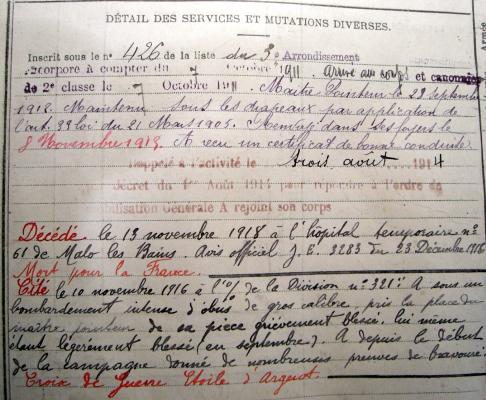 DÉTAIL DES SERVICES ET MUTATIONS DIVERSES.
Inscrit sous le n° 426 de la liste du 3e Arrondissement
Incorporé à compter du 7 Octobre 1911 arrivé au corps et canonnier
de 2e classe le 7 Octobre 1911 Maitre Pointeur le 29 septembre
1912. Maintenu sous les drapeaux par application de
l'art. 33 loi du 21 Mars 1905. Renvoyé dans ses foyers le
8 Novembre 1913. A reçu un certificat de bonne conduite
Rappelé à l'activité le trois août 1914
Décret du 1er Août 1914 pour répondre à l'ordre de
Mobilisation Générale A rejoint son corps
Décédé le 13 novembre 1918 à l'hôpital temporaire n°
61 de Malo les Bains. Avis officiel J.E. 3283 du 23 Décembre 1918
Mort pour la France.
Cité le 10 novembre 1916 à l'o/ de la Division n° 321: A sous un
bombardement intense d'obus de gros calibre, pris la place du
maître pointeur de sa pièce grièvement blessé, lui même
étant légèrement blessé (en septembre). A depuis le début
de la campagne donné de nombreuses preuves de bravoure:
Croix de Guerre Etoile d'Argent.
Armée